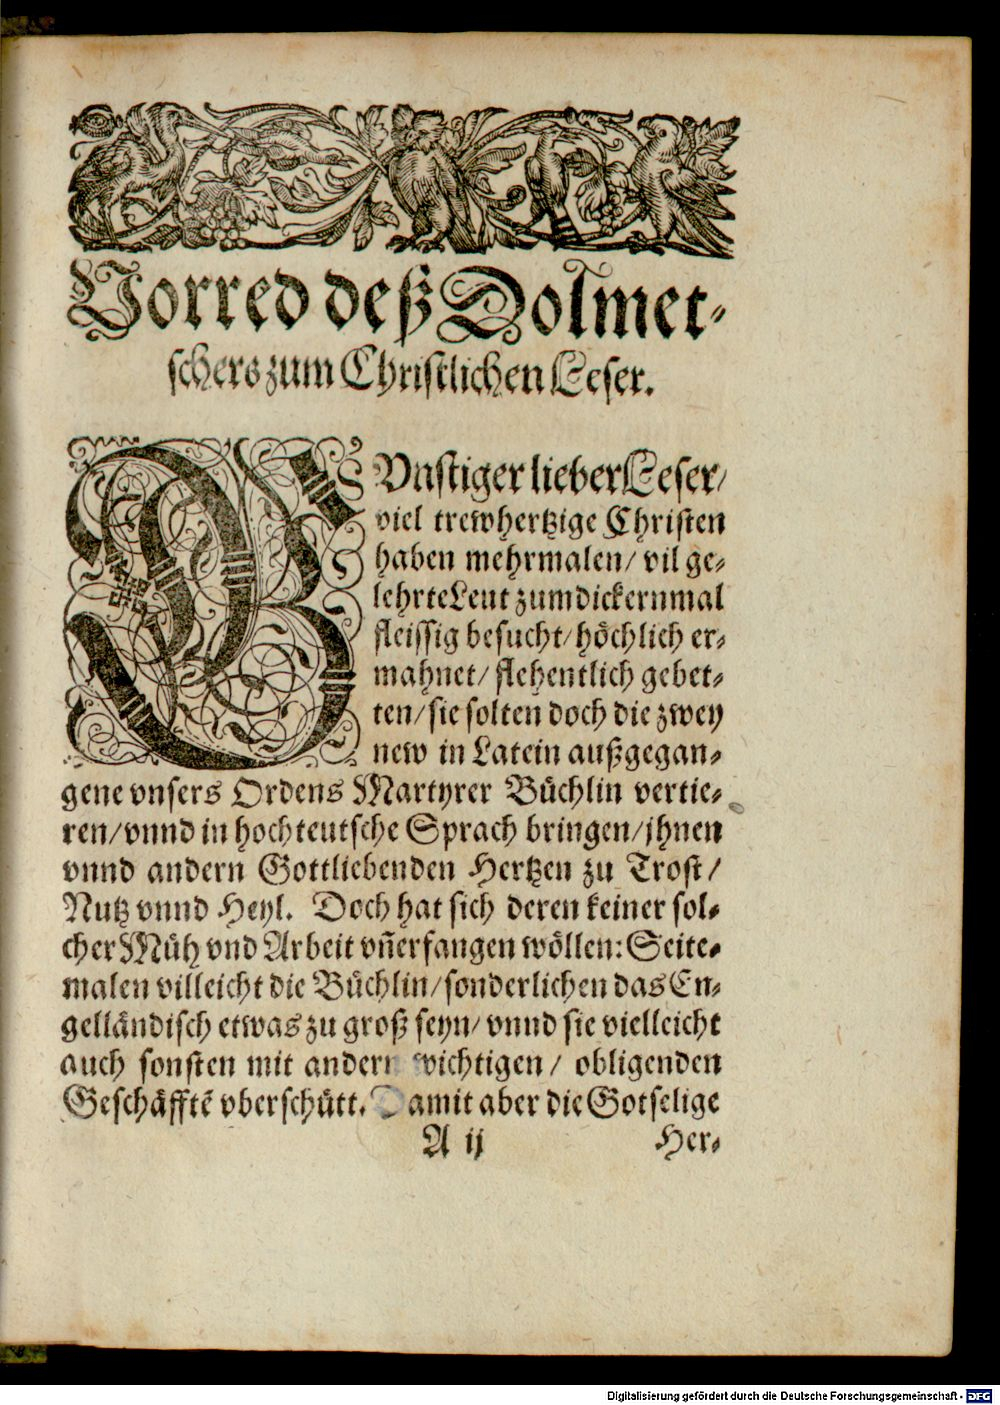 Vorred deß Dolmet-
schers zum Christlichen Leser.
GVnstiger lieber Leser/
viel trewhertzige Christen
haben mehrmalen/ vil ge-
lehrte Leut zum dickernmal
fleissig besucht/ höchlich er-
mahnet/ flehentlich gebet-
ten/ sie solten doch die zwey
new in Latein außgegan-
gene vnsers Ordens Martyrer Büchlin vertie-
ren/ vnnd in hochteutsche Sprach bringen/ jhnen
vnnd andern Gottliebenden Hertzen zu Trost/
Nutz vnnd Heyl. Doch hat sich deren keiner sol-
cher Müh vnd Arbeit vñerfangen wöllen: Seite-
malen villeicht die Büchlin/ sonderlichen das En-
gelländisch etwas zu groß seyn/ vnnd sie vielleicht
auch sonsten mit andern wichtigen/ obligenden
Geschäfftē vberschütt. Damit aber die Gotselige
A ij Her-
Digitalisierung gefördert durch die Deutsche Forschungsgemeinschaft - DFG